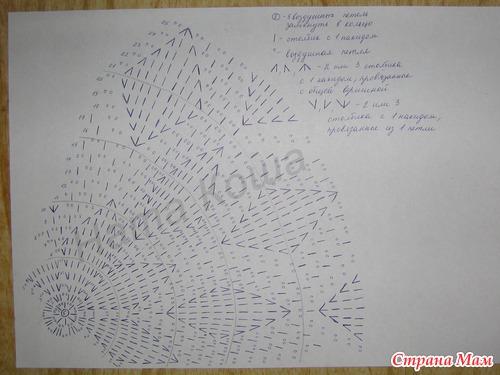 - 5 воздушных петель
замкнуть в кольцо
| - столбик с 1 накидом
- воздушная петля
- 2 или 3 столбика
с 1 накидом, провязанные
с общей вершиной
- 2 или 3
столбика с 1 накидом,
провязанные из 1 петли
Коша
Страна Мам